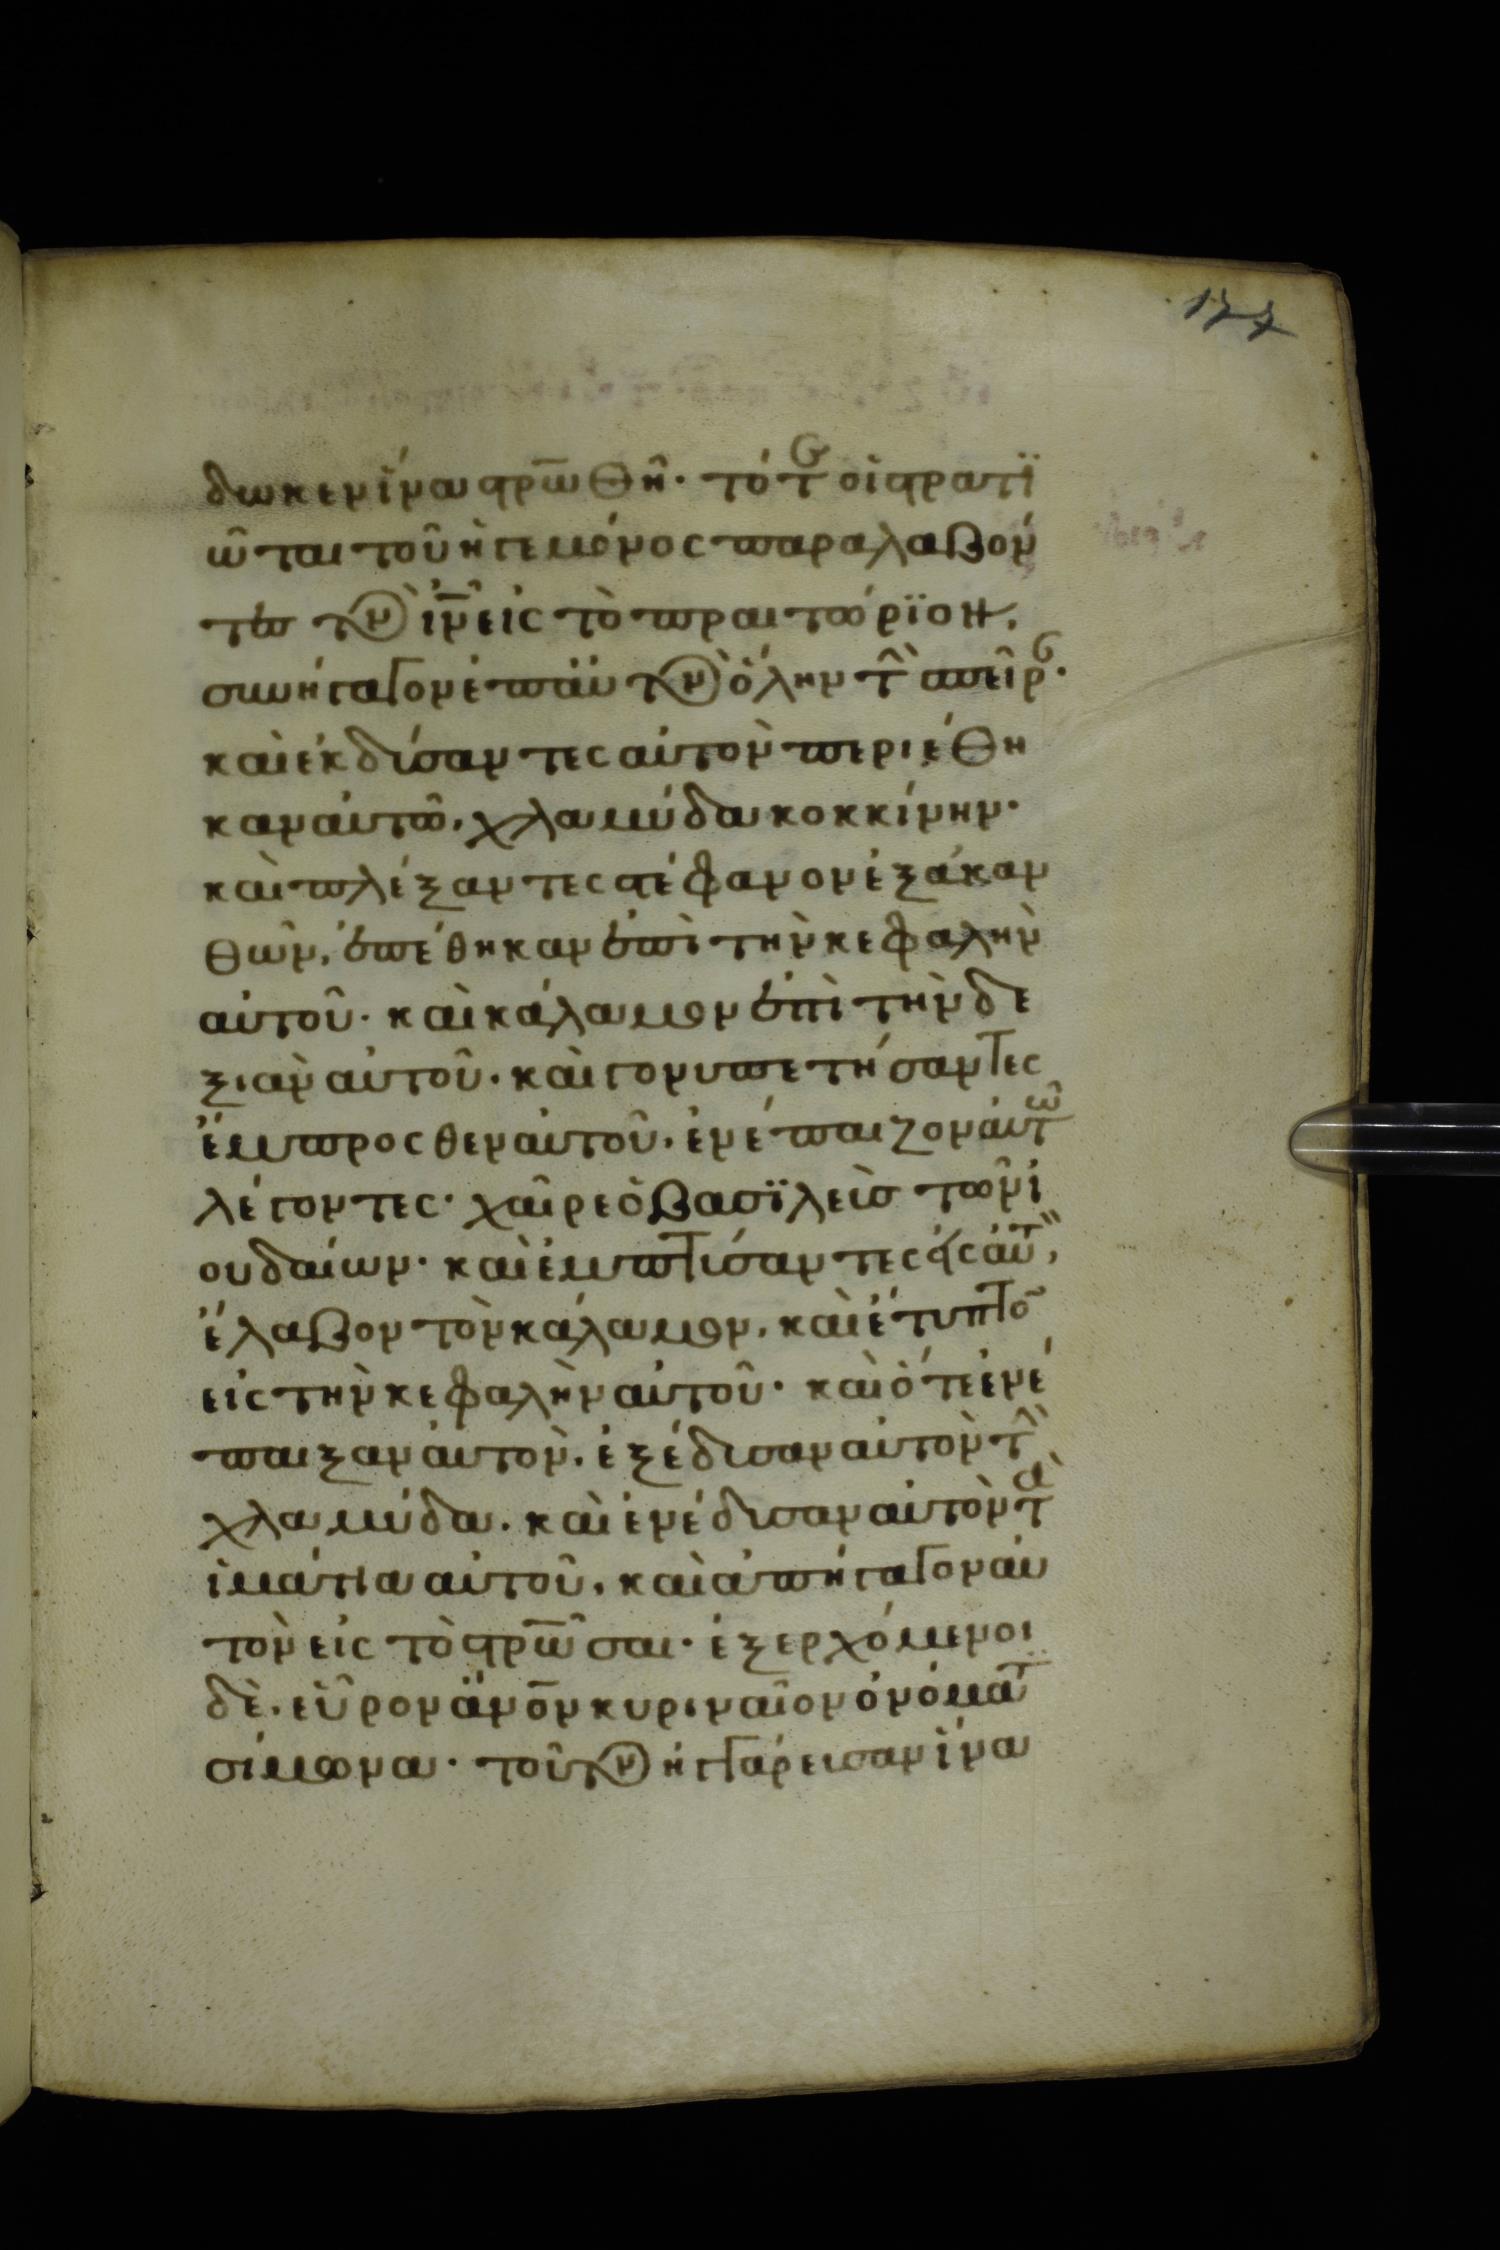 177
δωκεν ἵνα στρω̅θῆ· τότε οἱ στρατϊ
ῶται τοῦ ἡγεμόνος παραλαβόν
τες τὸν ἰν̅ εἰς τὸ πραιτώρϊον,
συνήγαγον ἐπ αὐτὸν ὅλην τὴν σπεῖρ·
καὶ ἐκδίσαντες αὐτὸν περιέθη
καν αὐτῶ, χλαμύδα κοκκίνην·
καὶ πλέξαντες στέφανον ἐξ ἀκαν
θῶν, ἐπέθηκαν ἐπὶ τὴν κεφαλὴν
αὐτοῦ· καὶ κάλαμον ἐπὶ τὴν δε
ξιὰν αὐτοῦ· καὶ γονυπετήσαντες
ἔμπροσθεν αὐτοῦ, ἐνέπαιζον αὐτῶ
λέγοντες· χαῖρε ὁ βασϊλεὺσ τῶν ἰ
ουδαίων· καὶ ἐμπτίσαντες εἰς αὐτ,
ἔλαβον τὸν κάλαμον, καὶ ἔτυπτο̅
εἰς τὴν κεφαλὴν αὐτοῦ· καὶ ὅτε ἐνέ
παιξαν αὐτὸν, ἐξέδισαν αὐτὸν τὴν
χλαμύδα· καὶ ἐνέδισαν αὐτὸν τὰ
ἱμάτια αὐτοῦ, καὶ ἀπήγαγον αὐ
τὸν εἰς τὸ στρω̅σαι· ἐξερχόμενοι
δὲ, εὗρον ἄνο̅ν κυριναῖον ὀνόματ
σίμωνα· τοῦτον ἠγγάρεισαν ἵνα